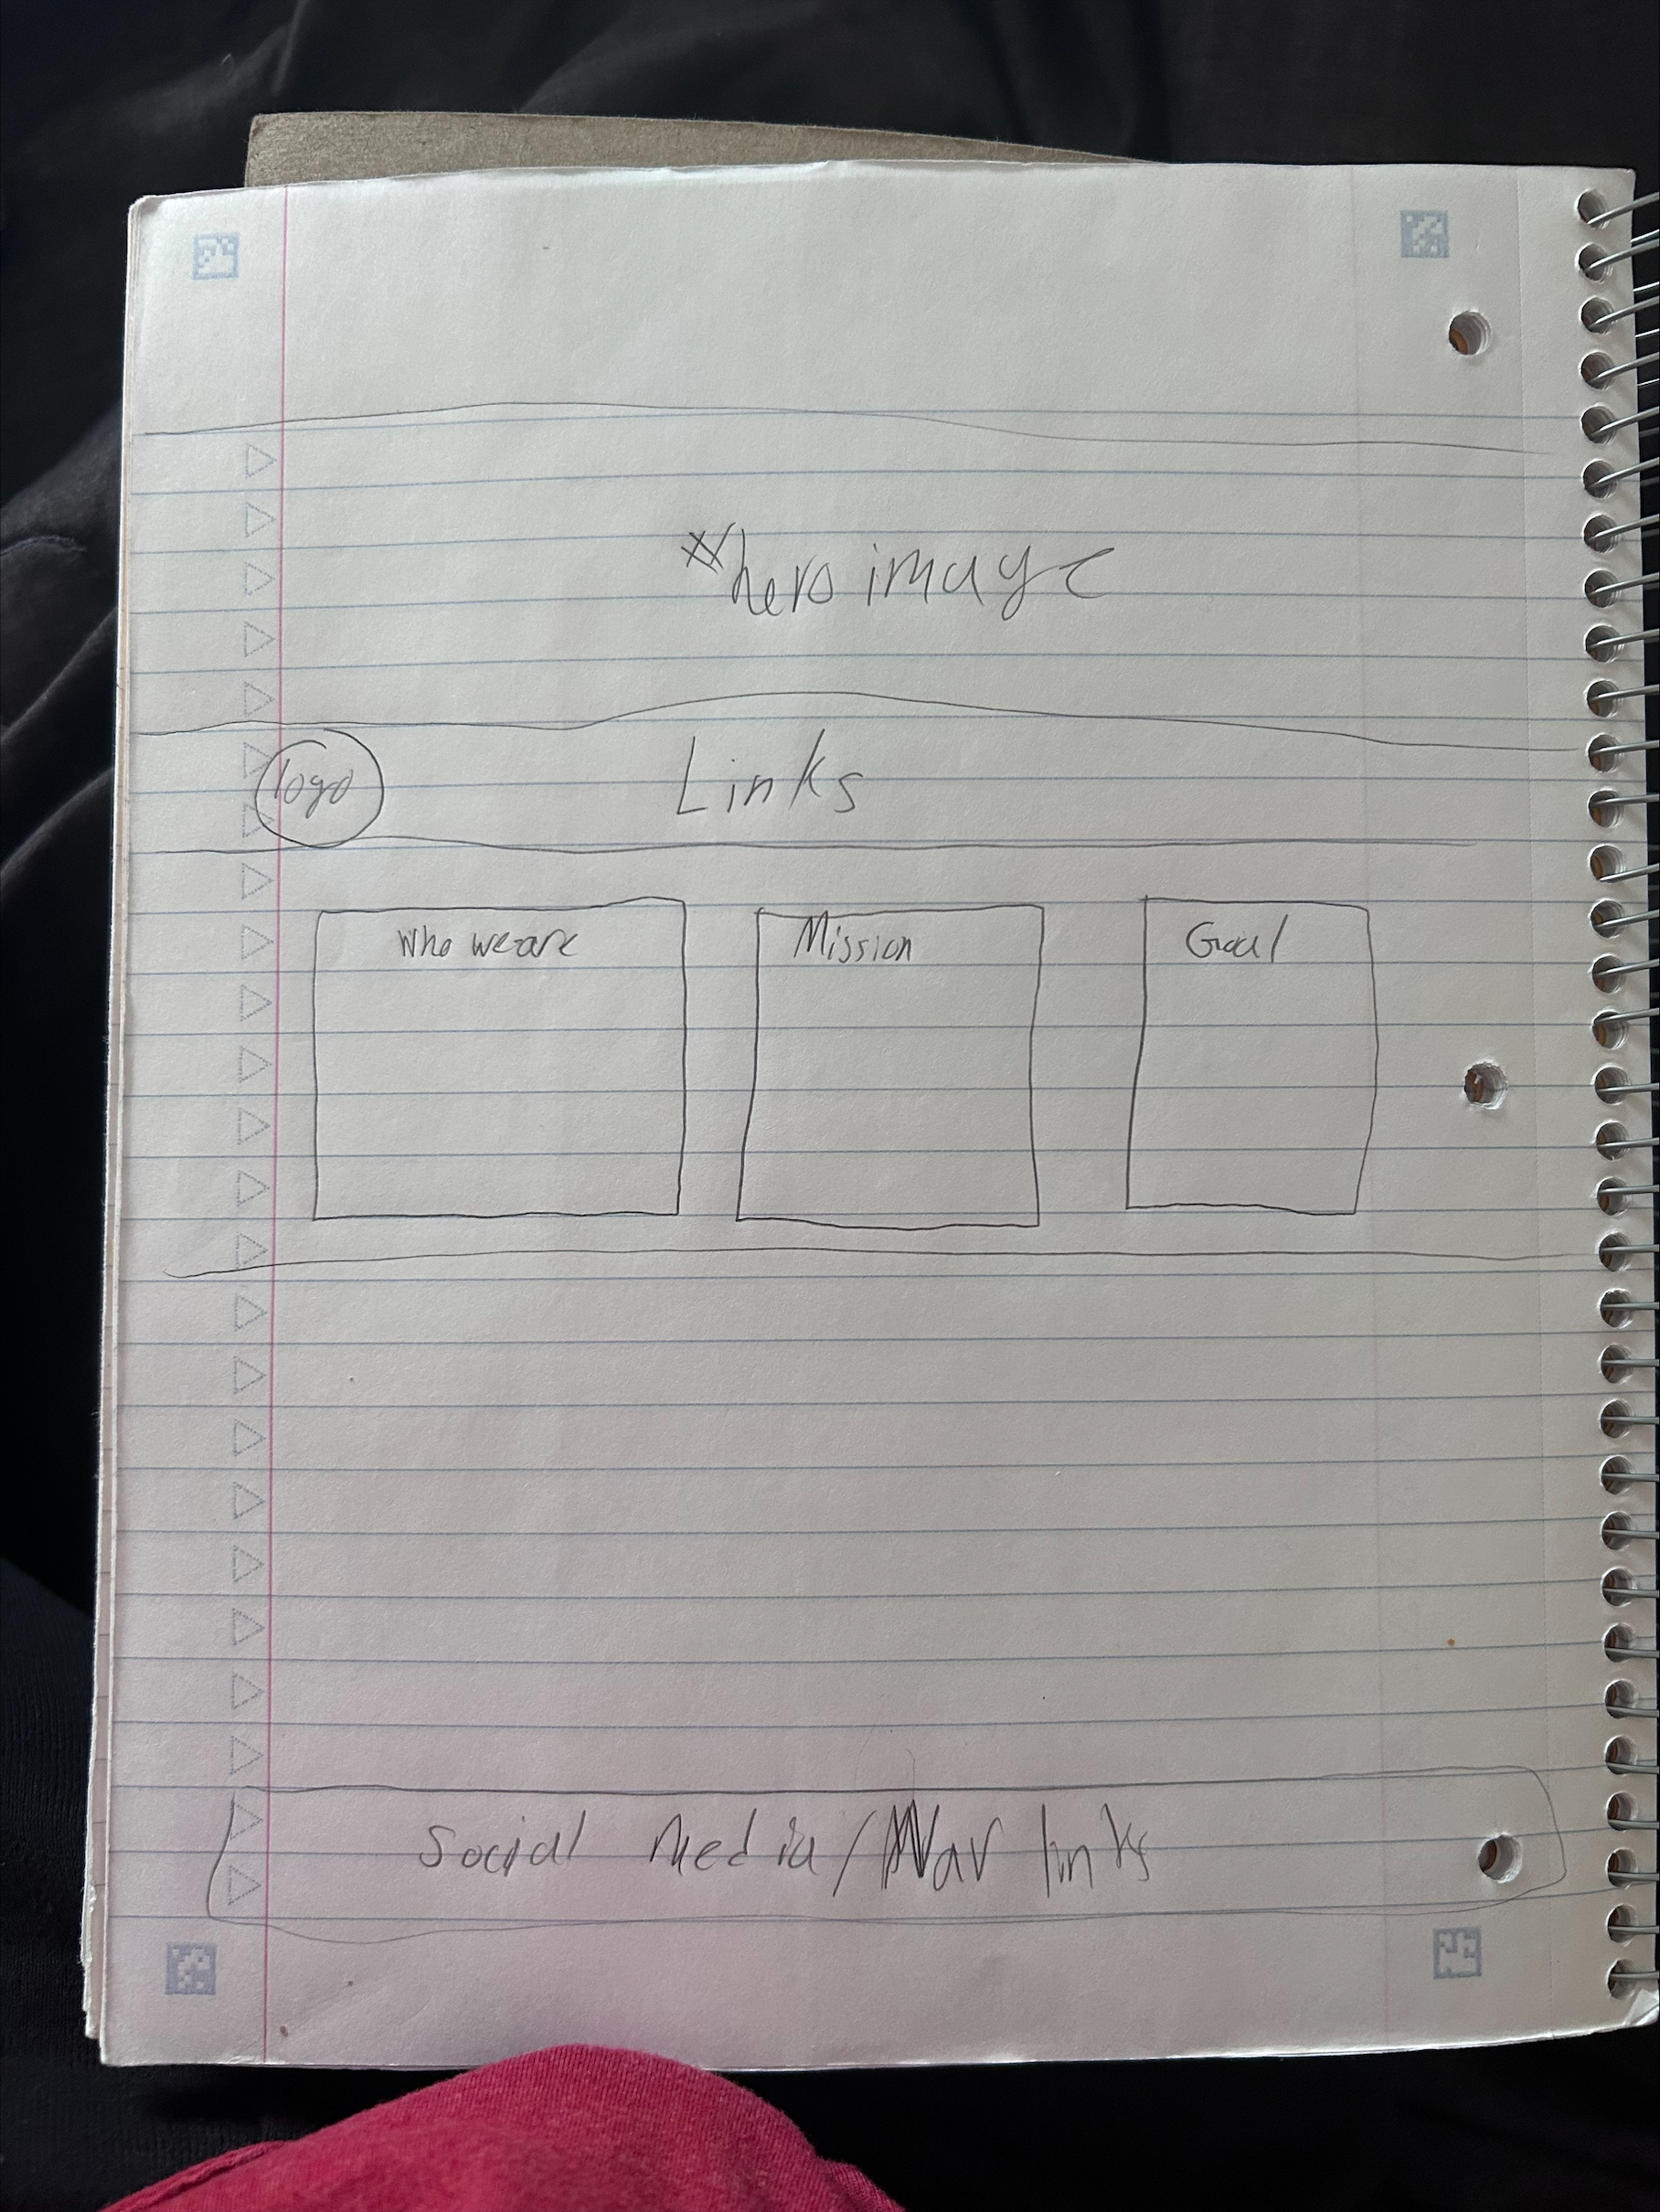 #hero image
logo Links
Who we are Mission Goal
Social Media/Nav links